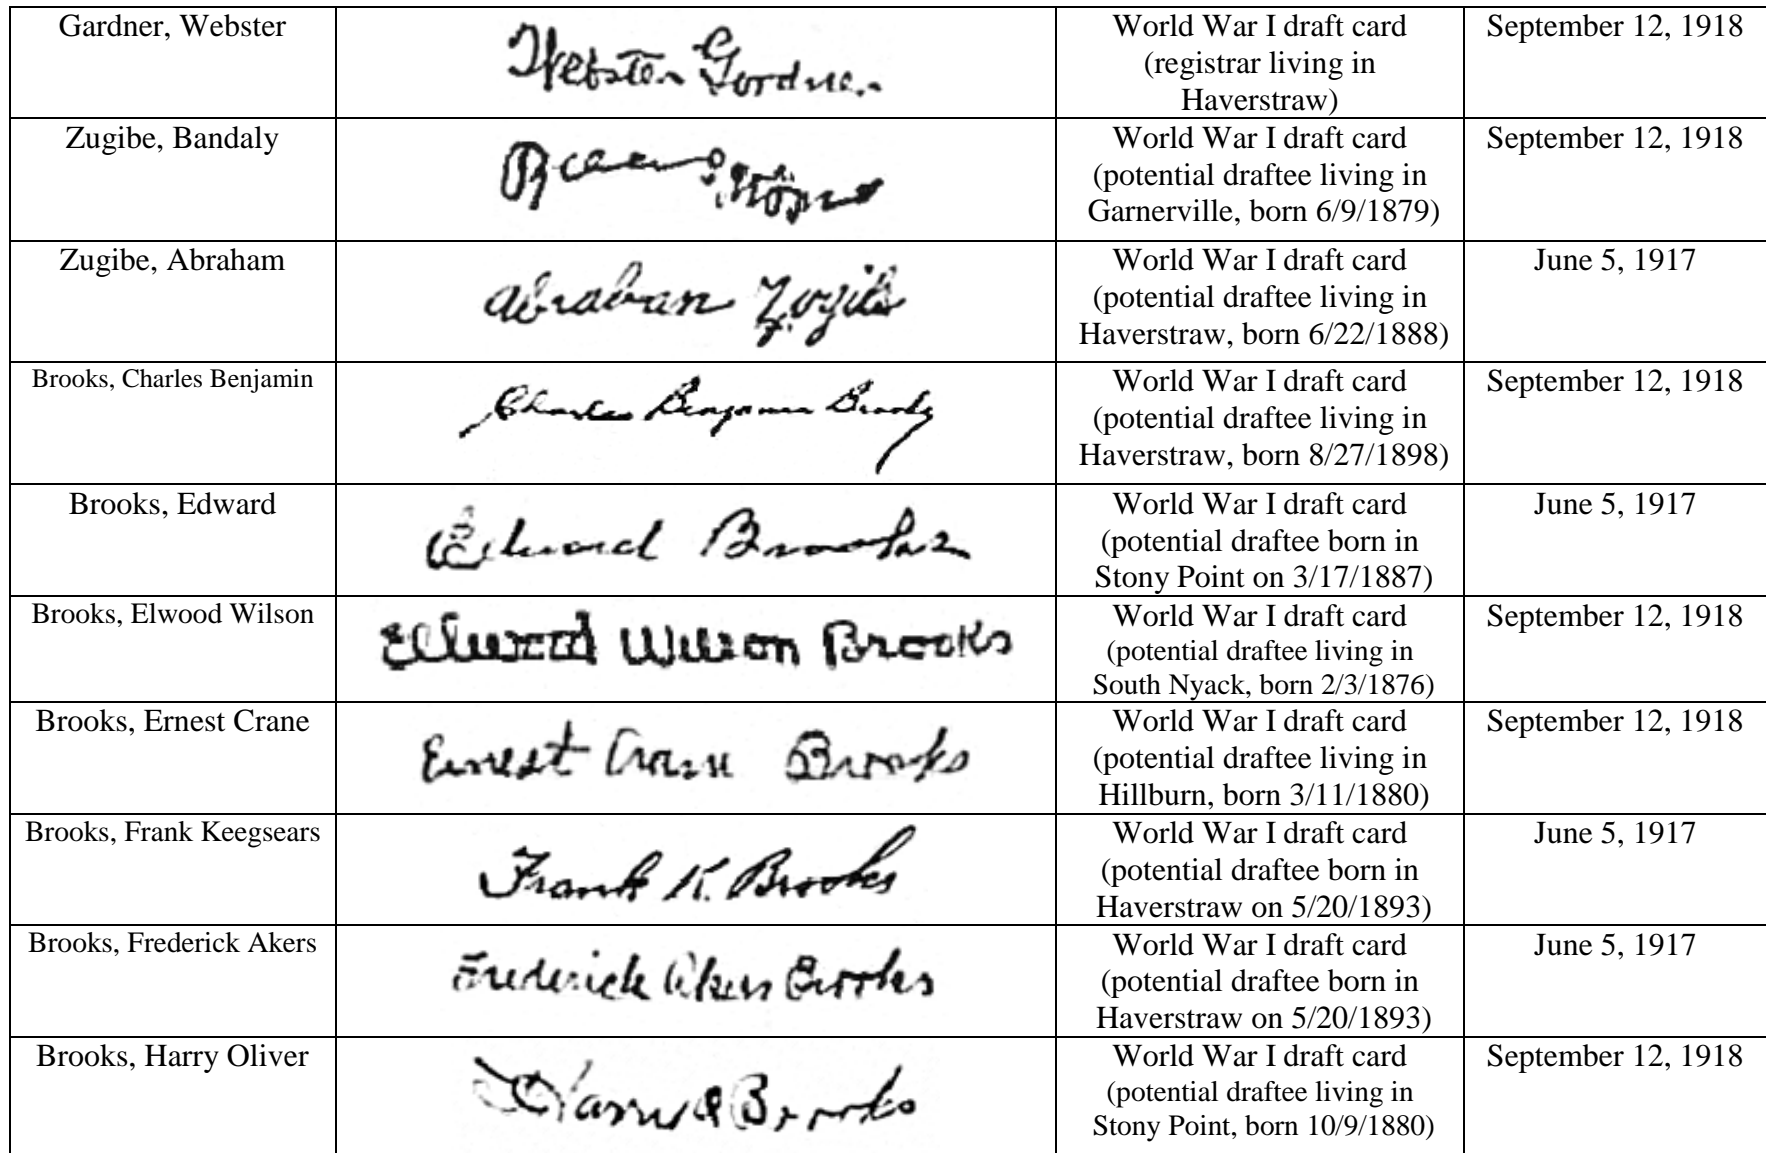 Gardner, Webster
Webster Gardner
World War I draft card
(registrar living in
Haverstraw)
September 12, 1918
Zugibe, Bandaly
World War I draft card
(potential draftee living in
Garnerville, born 6/9/1879)
September 12, 1918
Zugibe, Abraham
Abraham
World War I draft card
(potential draftee living in
Haverstraw, born 6/22/1888)
June 5, 1917
Brooks, Charles Benjamin
Charles Benjamin Brooks
World War I draft card
(potential draftee living in
Haverstraw, born 8/27/1898)
September 12, 1918
Brooks, Edward
Edward Brooks
World War I draft card
(potential draftee born in
Stony Point on 3/17/1887)
June 5, 1917
Brooks, Elwood Wilson
Ellwood Wilson Brooks
World War I draft card
(potential draftee living in
South Nyack, born 2/3/1876)
September 12, 1918
Brooks, Ernest Crane
Ernest Crane Brooks
World War I draft card
(potential draftee living in
Hillburn, born 3/11/1880)
September 12, 1918
Brooks, Frank Keegsears
Frank K. Brooks
World War I draft card
(potential draftee born in
Haverstraw on 5/20/1893)
June 5, 1917
Brooks, Frederick Akers
Frederick Akers Brooks
World War I draft card
(potential draftee born in
Haverstraw on 5/20/1893)
June 5, 1917
Brooks, Harry Oliver
Harry O Brooks
World War I draft card
(potential draftee living in
Stony Point, born 10/9/1880)
September 12, 1918